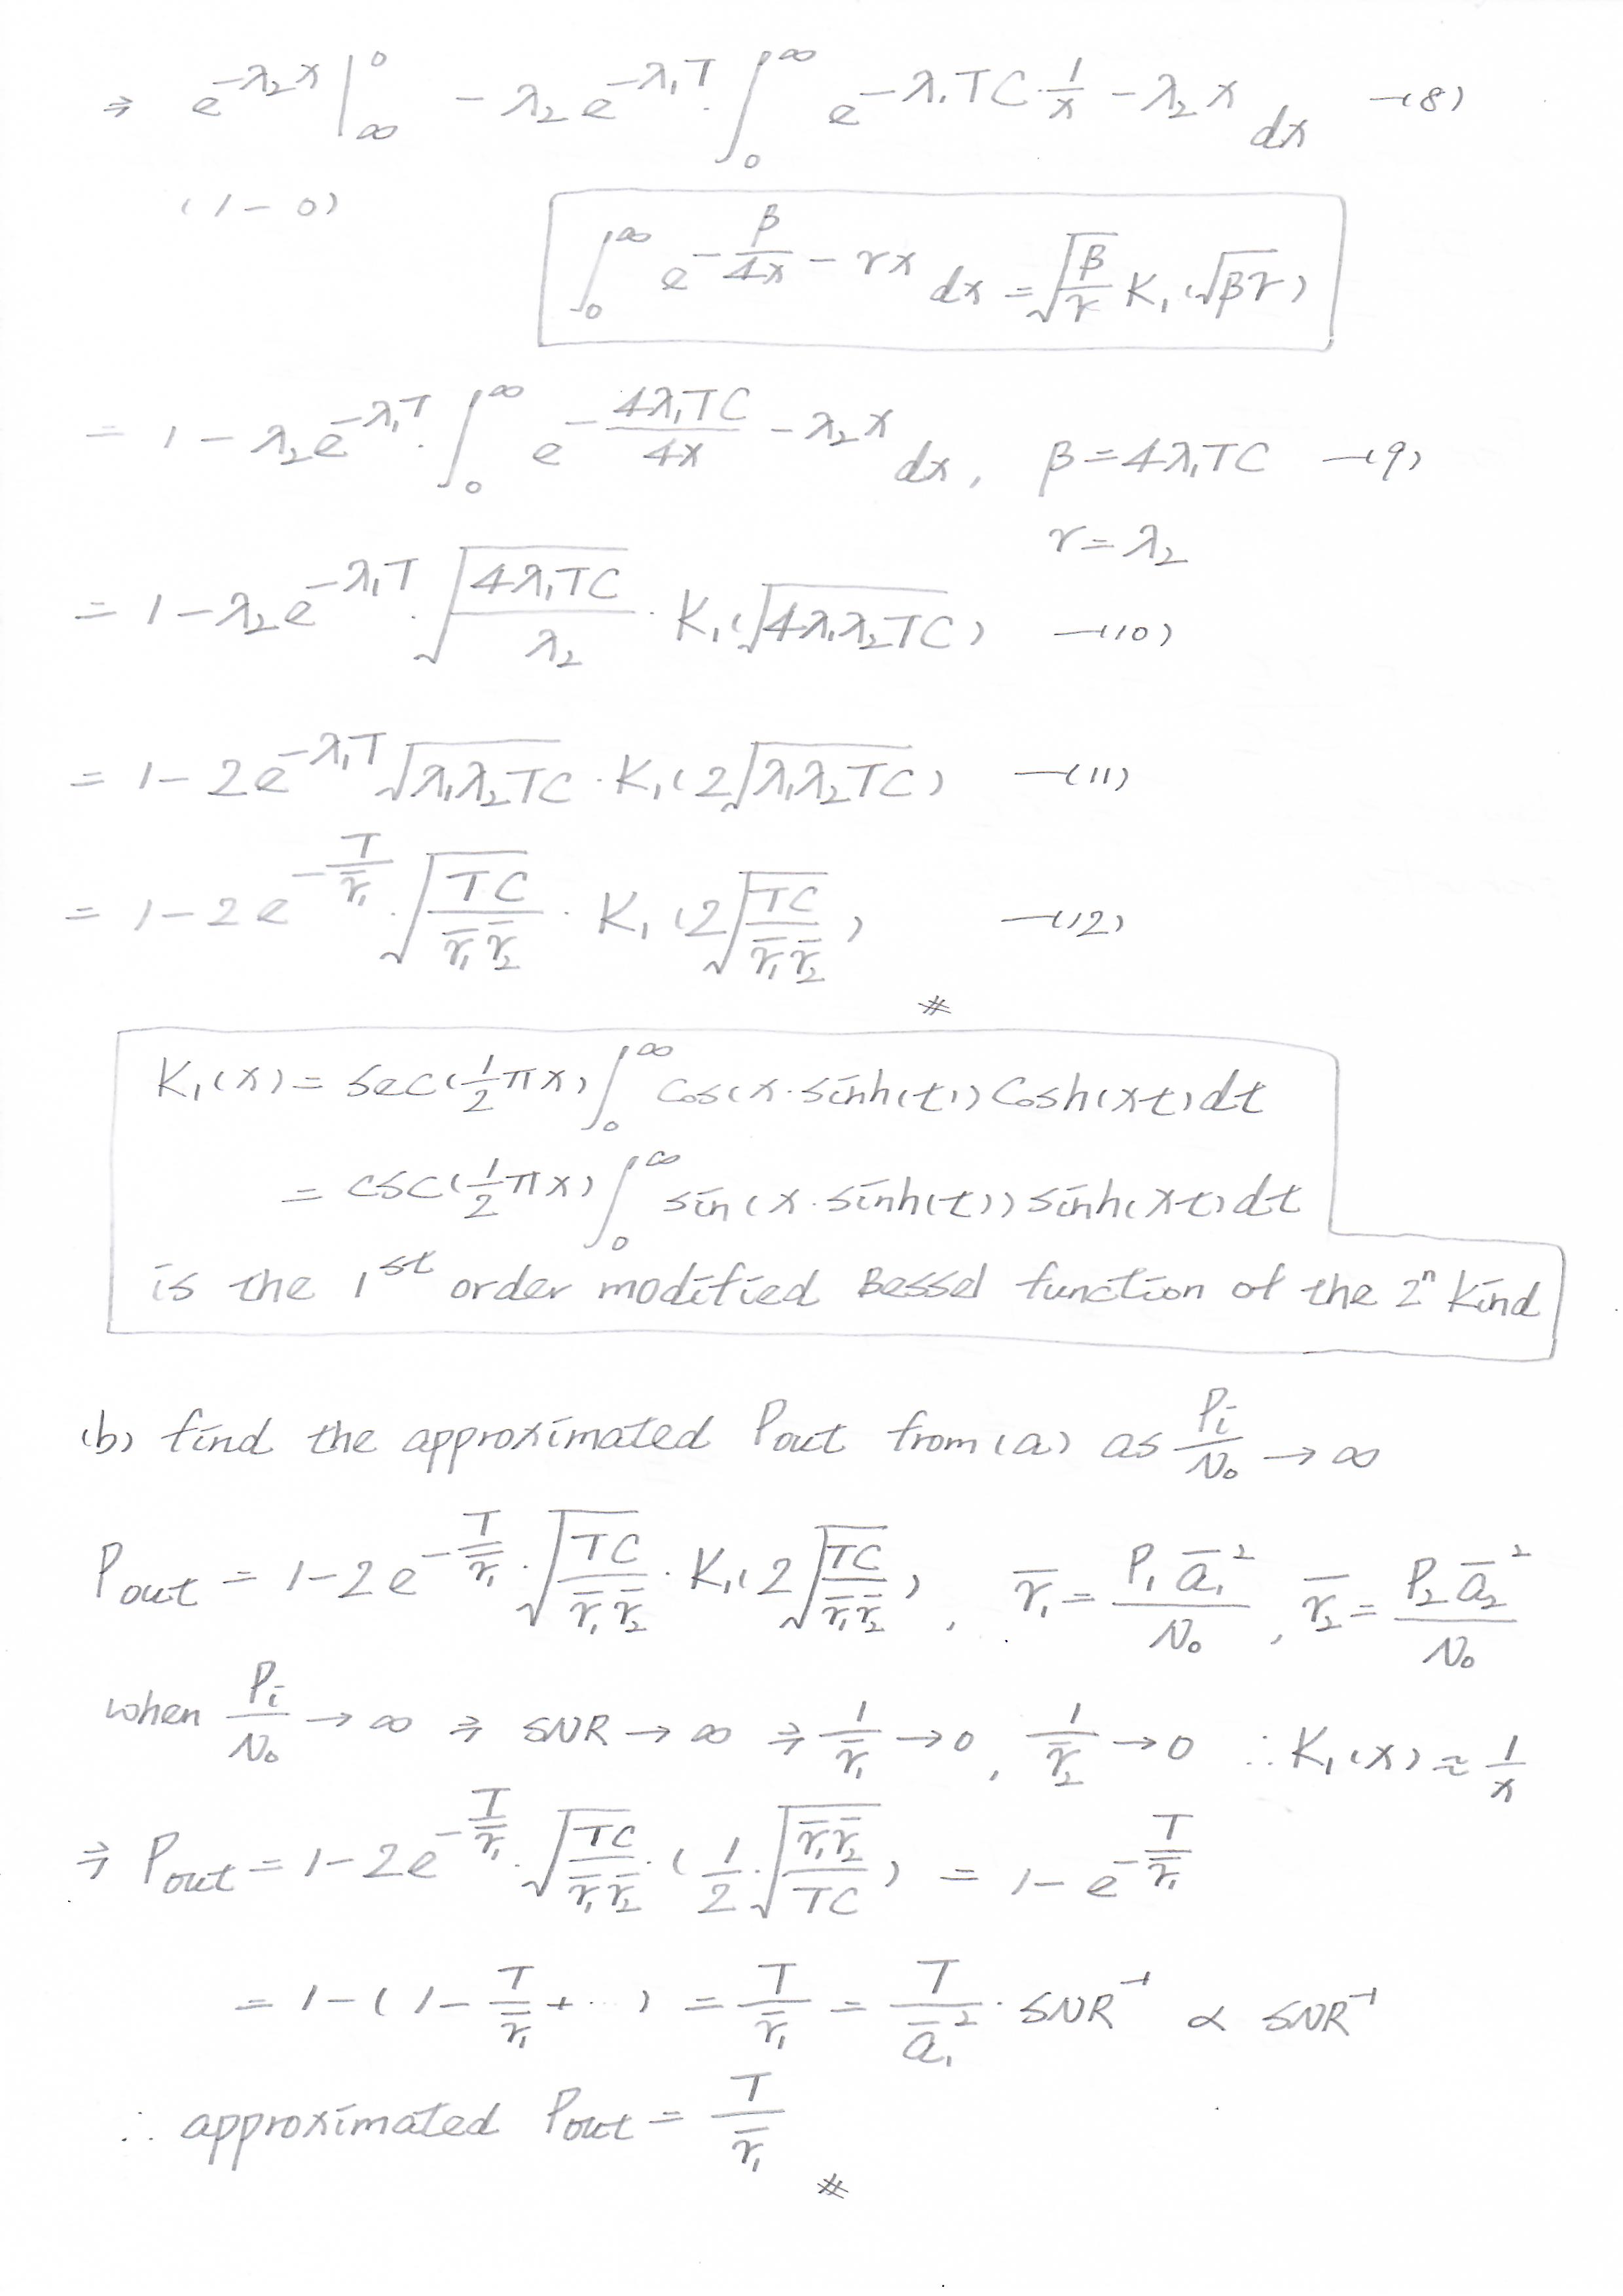 ⇒ e^{-λ₂x} |_∞^0 - λ₂e^{-λ₁T}·∫_0^∞ e^{-λ₁TC·\frac{1}{x} - λ₂x} dx —(8)
(1-0)
∫_0^∞ e^{-\frac{β}{4x} - γx} dx = \sqrt{\frac{β}{γ}} K₁(\sqrt{βγ})
= 1 - λ₂e^{-λ₁T}·∫_0^∞ e^{-\frac{4λ₁TC}{4x} - λ₂x} dx, β = 4λ₁TC —(9)
γ = λ₂
= 1 - λ₂e^{-λ₁T}·\sqrt{\frac{4λ₁TC}{λ₂}}·K₁(\sqrt{4λ₁λ₂TC}) —(10)
= 1 - 2e^{-λ₁T}\sqrt{λ₁λ₂TC}·K₁(2\sqrt{λ₁λ₂TC}) —(11)
= 1 - 2e^{-\frac{T}{\bar{γ}₁}}·\sqrt{\frac{TC}{\bar{γ}₁\bar{γ}₂}}·K₁(2\sqrt{\frac{TC}{\bar{γ}₁\bar{γ}₂}}) —(12)
#
K₁(x) = sec(\frac{1}{2}πx)∫_0^∞ cos(x·sinh(t))cosh(xt)dt
= csc(\frac{1}{2}πx)∫_0^∞ sin(x·sinh(t))sinh(xt)dt
is the 1^{st} order modified Bessel function of the 2ⁿ kind
(b) find the approximated Pout from (a) as \frac{Pᵢ}{N₀} → ∞
Pout = 1 - 2e^{-\frac{T}{\bar{γ}₁}}·\sqrt{\frac{TC}{\bar{γ}₁\bar{γ}₂}}·K₁(2\sqrt{\frac{TC}{\bar{γ}₁\bar{γ}₂}}), \bar{γ}₁ = \frac{P₁\bar{a}₁²}{N₀}, \bar{γ}₂ = \frac{P₂\bar{a}₂²}{N₀}
when \frac{Pᵢ}{N₀} → ∞ ⇒ SNR → ∞ ⇒ \frac{1}{\bar{γ}₁} → 0, \frac{1}{\bar{γ}₂} → 0 ∴ K₁(x) ≈ \frac{1}{x}
⇒ Pout = 1 - 2e^{-\frac{T}{\bar{γ}₁}}·\sqrt{\frac{TC}{\bar{γ}₁\bar{γ}₂}}·(\frac{1}{2}·\sqrt{\frac{\bar{γ}₁\bar{γ}₂}{TC}}) = 1 - e^{-\frac{T}{\bar{γ}₁}}
= 1 - (1 - \frac{T}{\bar{γ}₁} + ...) = \frac{T}{\bar{γ}₁} = \frac{T}{\bar{a}₁²}·SNR^{-1} ∝ SNR^{-1}
∴ approximated Pout = \frac{T}{\bar{γ}₁}
#